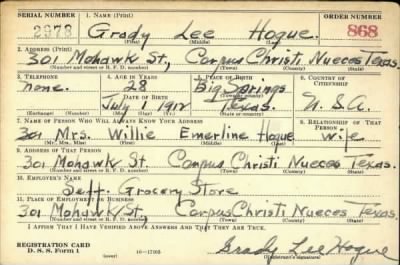 SERIAL NUMBER 1. NAME (Print) ORDER NUMBER
2978 Grady Lee Hogue. 868
(First) (Middle) (Last)
2. ADDRESS (Print)
301 Mohawk St., Corpus Christi Nueces Texas.
(Number and street or R. F. D. number) (Town) (County) (State)
3. TELEPHONE 4. AGE IN YEARS 5. PLACE OF BIRTH 6. COUNTRY OF CITIZENSHIP
none. 28 Big Springs
DATE OF BIRTH (Town or county)
July 1 1912 Texas. U.S.A.
(Exchange) (Number) (Mo.) (Day) (Yr.) (State or country)
7. NAME OF PERSON WHO WILL ALWAYS KNOW YOUR ADDRESS 8. RELATIONSHIP OF THAT PERSON
Mrs. Willie Emerline Hogue wife
(Mr., Mrs., Miss) (First) (Middle) (Last)
9. ADDRESS OF THAT PERSON
301 Mohawk St. Corpus Christi Nueces Texas.
(Number and street or R. F. D. number) (Town) (County) (State)
10. EMPLOYER'S NAME
Self. Grocery Store
11. PLACE OF EMPLOYMENT OR BUSINESS
301 Mohawk St. Corpus Christi Nueces Texas.
(Number and street or R. F. D. number) (Town) (County) (State)
I AFFIRM THAT I HAVE VERIFIED ABOVE ANSWERS AND THAT THEY ARE TRUE.
REGISTRATION CARD
D. S. S. Form 1 (over) Grady Lee Hogue
(Registrant's signature)